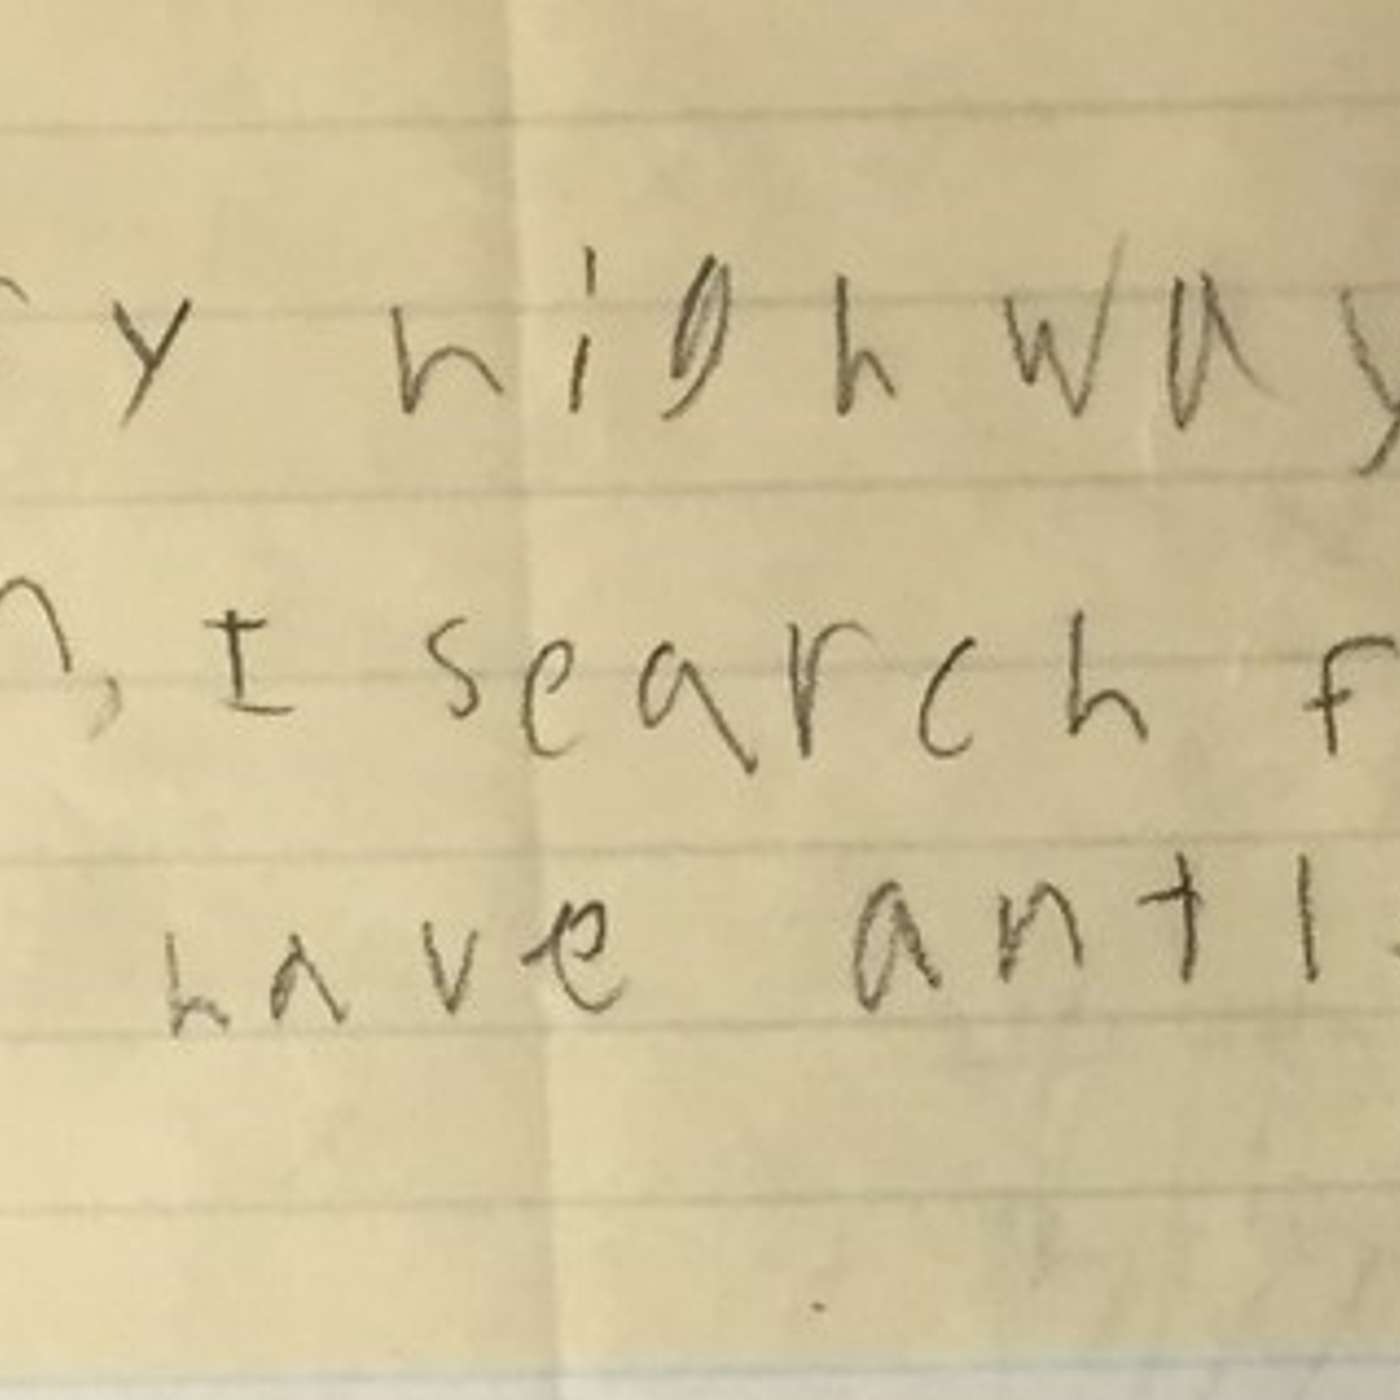 y highway
, I search f
have anti